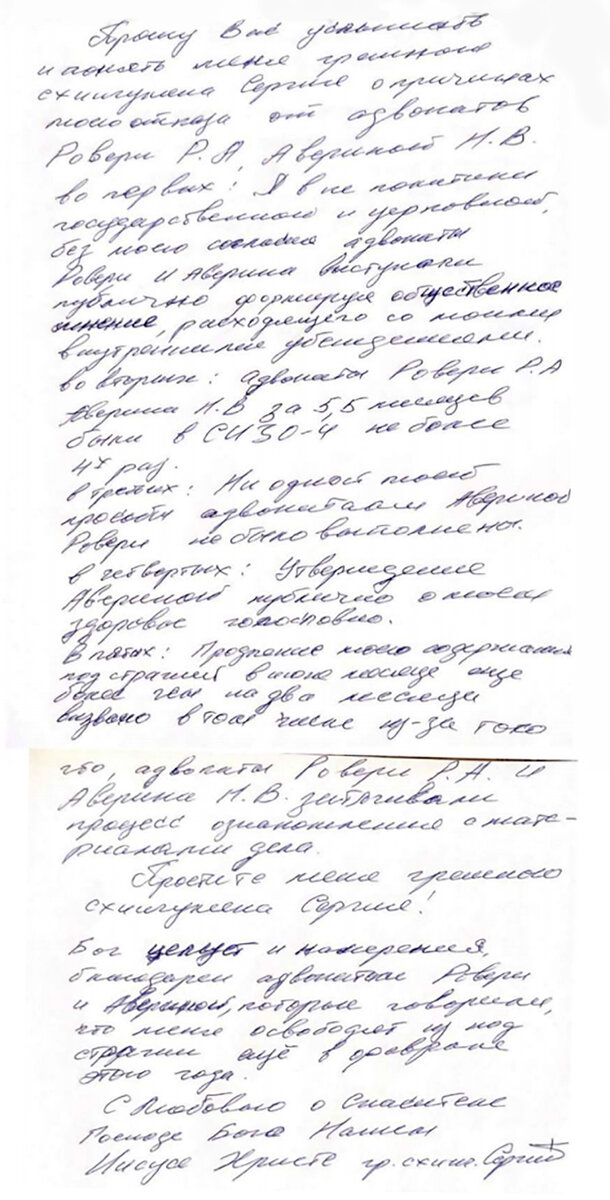 Прошу Вас услышать
и понять меня грешного
схиигумена Сергия о причинах
моего отказа от адвокатов
Ровери Р.А, Авериной Н.В.
во первых: Я вне политики
государственной и церковной,
без моего согласия адвокаты
Ровери и Аверина выступали
публично формируя общественное
мнение, расходящего со моими
внутренними убеждениями.
во вторых: адвокаты Ровери Р.А
Аверина Н.В за 5,5 месяцев
были в СИЗО-4 не более
4х раз.
в третьих: Ни одной моей
просьбы адвокатами Авериной
Ровери не было выполнены.
в четвертых: Утверждение
Авериной публично о моем
здоровье голословно.
В пятых: Продление моего содержания
под стражей в июне месяце еще
более чем на два месяца
вызвано в том числе из-за того
что, адвокаты Ровери Р.А. и
Аверина Н.В. затягивали
процесс ознакомления с мате-
риалами дела.
Простите меня грешного
схиигумена Сергия!
Бог целует и намерения,
благодарен адвокатам Ровери
и Авериной, которые говорили,
что меня освободят из под
стражи ещё в феврале
этого года.
С Любовью о Спасителе
Господе Боге Нашем
Иисусе Христе гр. схиг. Сергий